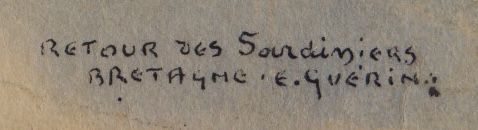 RETOUR DES Sardiniers
BRETAGNE . E. GUERIN.